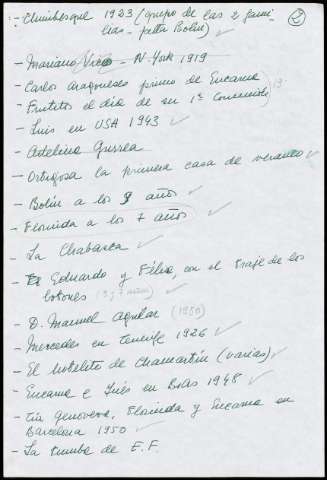 - Chimbesque 1923 (grupo de las 2 fami- 2
lias - perra Bolín)
- Mariano Vico - N. York 1919
- Carlos Aragoneses primo de Encarna
- Frutitos el día de su 1ª Comunión
- Luis en USA 1943
- Adelina Gurrea
- Ortigosa la primera casa de veraneo
- Bolín a los 9 años
- Florinda a los 7 años
- La Chabarca
- Eduardo y Félix, en el traje de los
botones (9 y 7 años)
- D. Manuel Aguilar (1950)
- Mercedes en Tenerife 1926
- El hotelito de Chamartín (varias)
- Encarna e Inés en Blas 1948
- tía Genoveva, Florinda y Encarna en
Barcelona 1950
- La tumba de E.F.